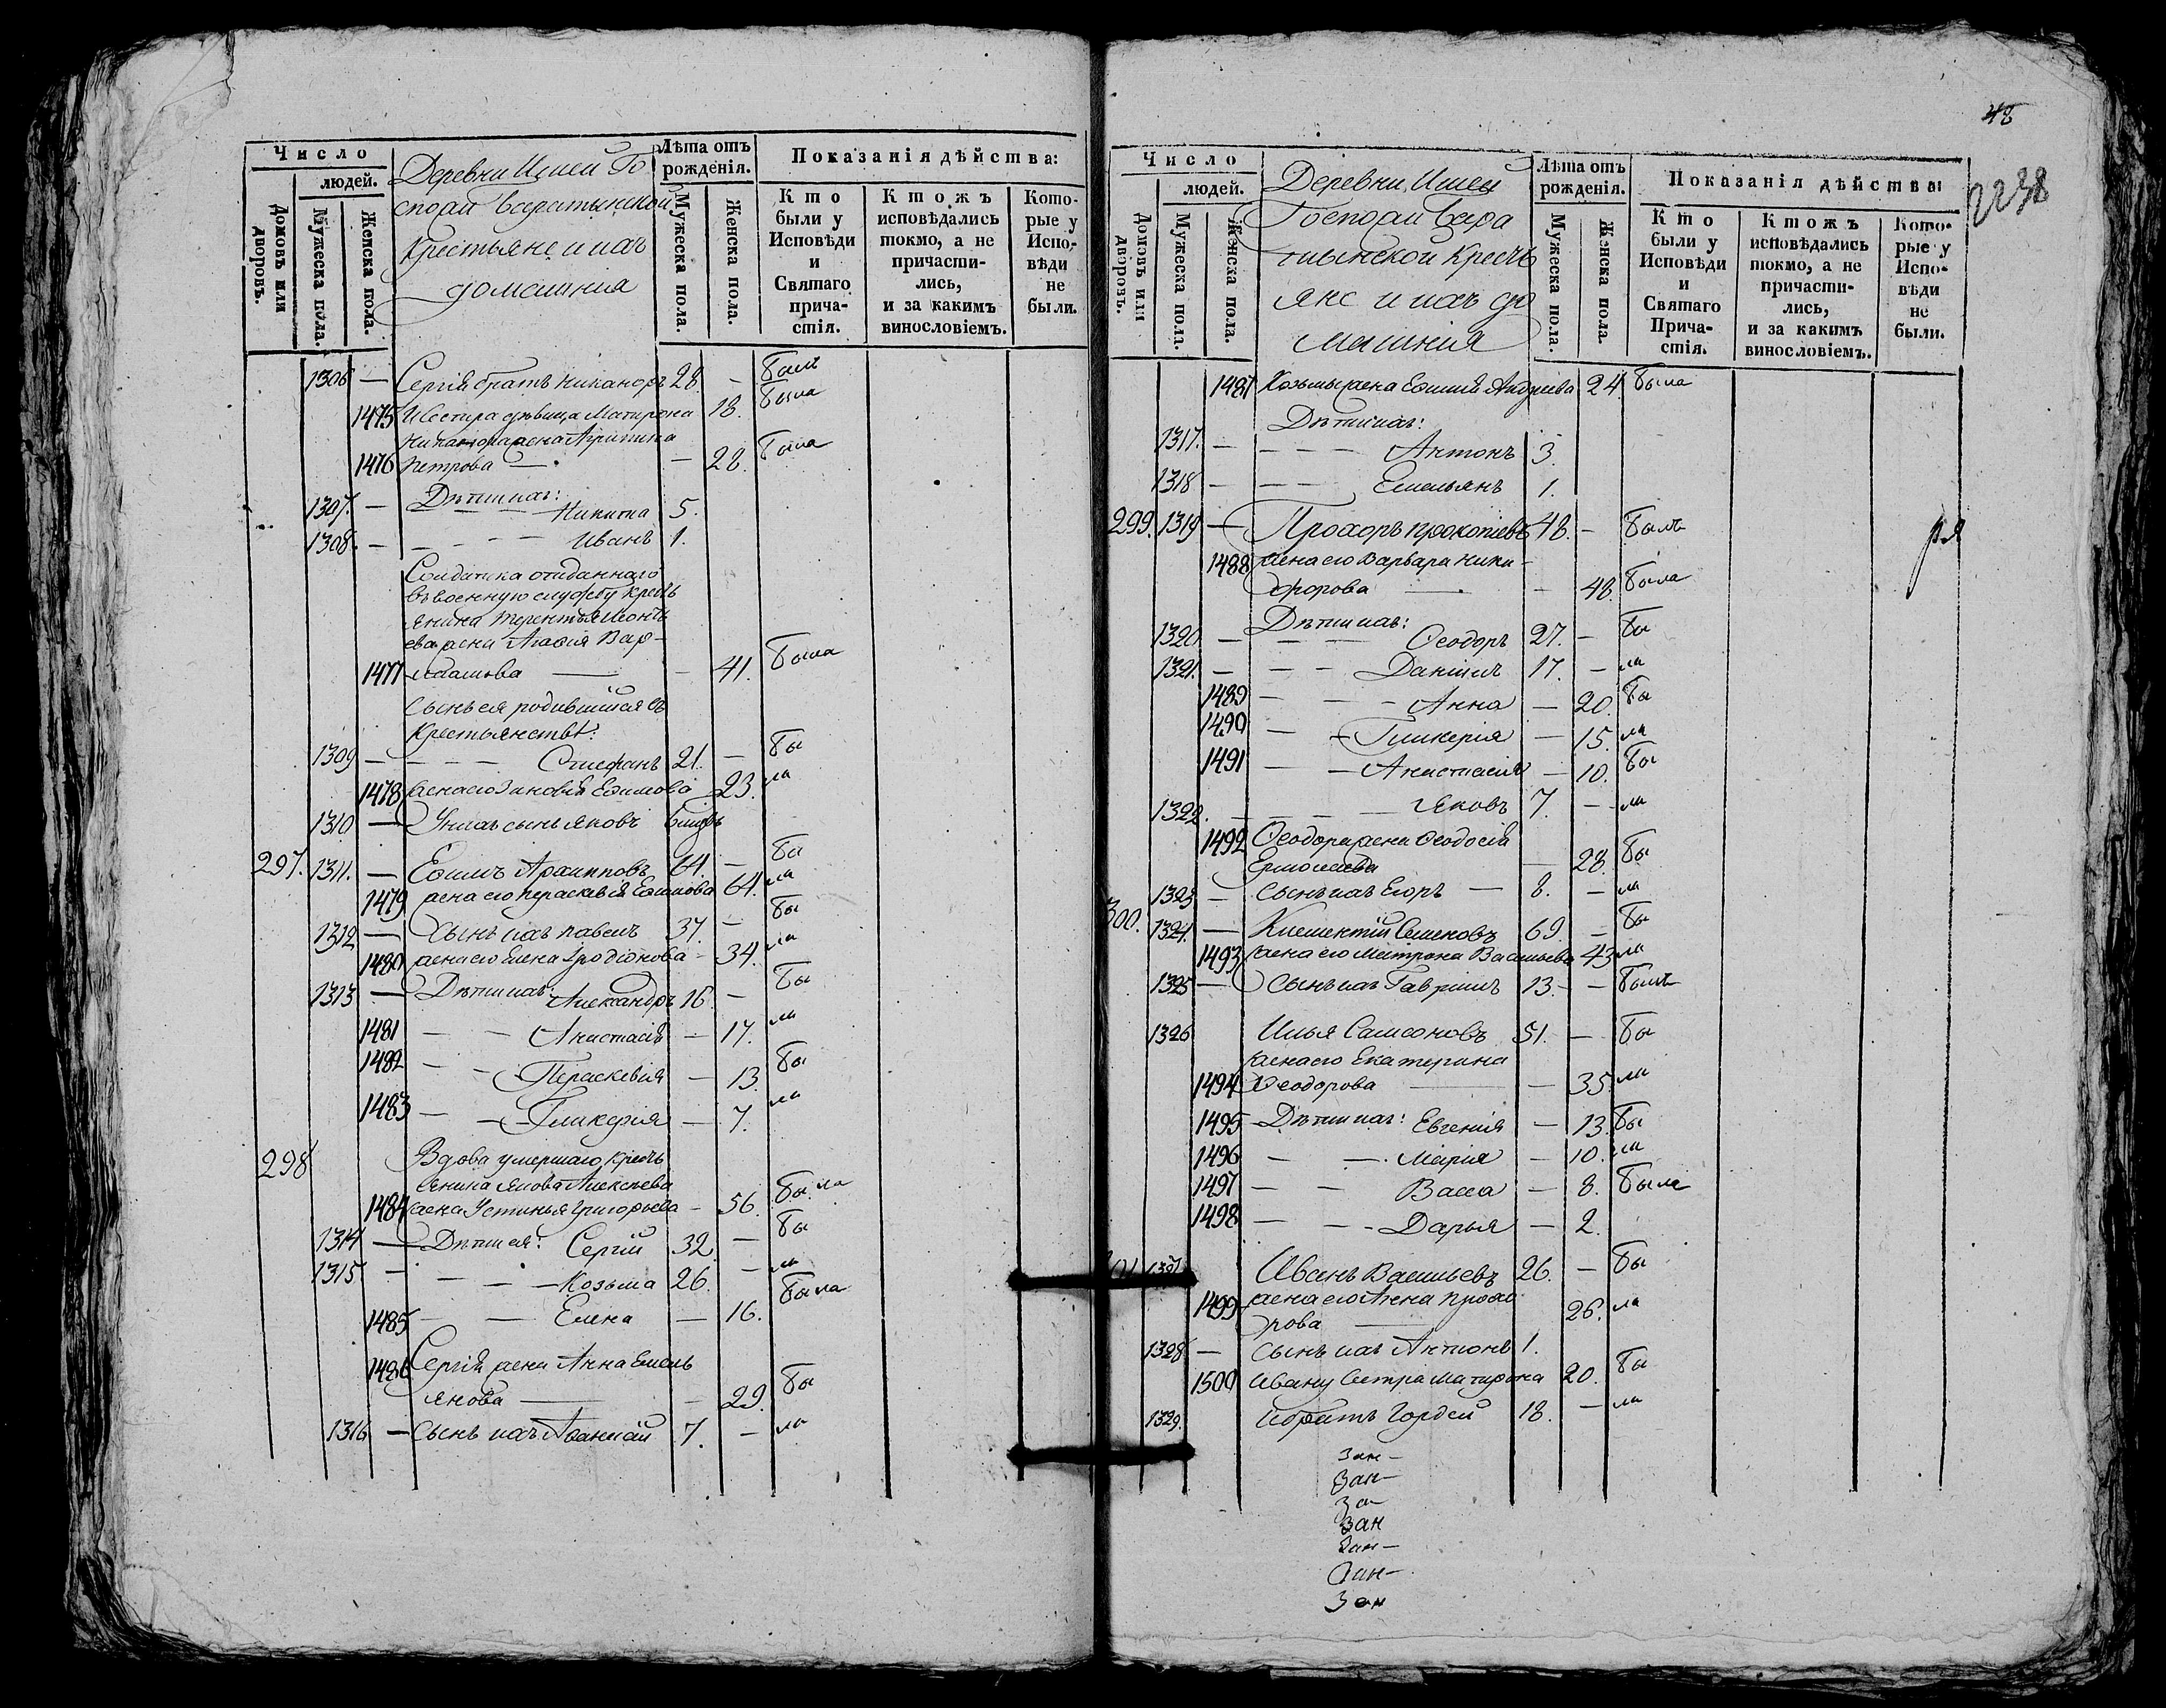 Число
людей.
Домовъ или дворовъ.
Мужеска пола.
Женска пола.
Деревни Ишеи Го
спожи Варатынской
Крестьяне и ихъ
домашния
Лѣта отъ рожденія.
Мужеска пола.
Женска пола.
Показанія дѣйства:
Кто были у Исповѣди и Святаго прича- стія.
Ктожъ исповѣдались токмо, а не причасти- лись, и за какимъ винословіемъ.
Кото- рые у Испо- вѣди не были.
1306 — Сергія братъ Никаноръ 28. — былъ
1475 И Сестра дѣвица Матрона 18. была
Никанора жена
1476 Петрова — — 28. была
1307. — Дѣти ихъ: Никита 5.
1308. — Иванъ 1.
Солдатка отданнаго
въ военную службу кресть
янина Терентія Леонть
ева жена Агафія Вар-
1477 — — 41. была
Сынъ ея родившійся въ
крестьянствѣ:
1309 — Стефанъ 21. — бы
1478 жена его Зиновія Ефимова 23. ли
1310 — У нихъ сынъ Яковъ
297. 1311. — Ефимъ Архиповъ 64. — бы
1479 жена его Параскевія Ефимова 64. ли
1312 — Сынъ ихъ Павелъ 37. — бы
1480 жена его Елена Иродіонова — 34. ли
1313 — Дѣти ихъ: Александръ 16. — бы
1481 — — Анастасія — 17. ли
1482 — — Параскевія — 13. бы
1483 — — Гликерія — 7. ли
298 Вдова умершаго кресть
янина Якова Алексѣева
1484 жена Устинья Григорьева — 56. была
1314 — Дѣти ея: Сергій 32. — бы
1315 — Козьма 26. — ли
1485 — — Елена — 16. была
1486 Сергія жена Анна Емель
янова — — 29. бы
1316 — Сынъ ихъ Афанасій 7. — ли
48
2238
Число
людей.
Домовъ или дворовъ.
Мужеска пола.
Женска пола.
Деревни Ишеи
Госпожи Вара
тынской Кресть
яне и ихъ до
машния
Лѣта отъ рожденія.
Мужеска пола.
Женска пола.
Показанія дѣйства:
Кто были у Исповѣди и Святаго Прича- стія.
Ктожъ исповѣдались токмо, а не причасти- лись, и за какимъ винословіемъ.
Кото- рые у Испо- вѣди не были.
1487 Козьмы жена Ефимія Андреева 24. была
Дѣти ихъ:
1317. — — — — Антонъ 3.
1318 — — — Емельянъ 1.
299. 1319 — Прохоръ Прокопіевъ 48. — былъ
1488 жена его Варвара Ники-
форова — — 48. была
1320 — Дѣти ихъ: Ѳеодоръ 27. — бы
1321. — — — Даніилъ 17. — ли
1489 — — Анна — 20. бы
1490 — — Гликерія — 15. ли
1491 — — Анастасія — 10. бы
1322. — — Яковъ 7. — ли
1492 Ѳеодора жена Ѳеодосія
Ермолаева — 28. бы
1323 — Сынъ ихъ Егоръ — 8. — ли
300. 1324. — Климентій Семеновъ 69. — бы
1493 жена его Матрона Васильева 43 ли
1325 — Сынъ ихъ Гавріилъ 13. — былъ
1326 Илья Самсоновъ 51. — бы
жена его Екатерина
1494 Ѳеодорова — — 35. ли
1495 Дѣти ихъ: Евгенія — 13. бы
1496 — — Марія — 10. ли
1497 — — Васса — 8. была
1498 — — Дарья — 2.
1327 Иванъ Васильевъ 26. — бы
1499 жена его Анна Прохо
рова — 26. ли
1328 — Сынъ ихъ 1.
1500 Ивану Сестра Матрона 20. бы
1329. И братъ Гордей 18. — ли
Зан—
Зан—
За—
Зан
Зан—
Зан—
Зан